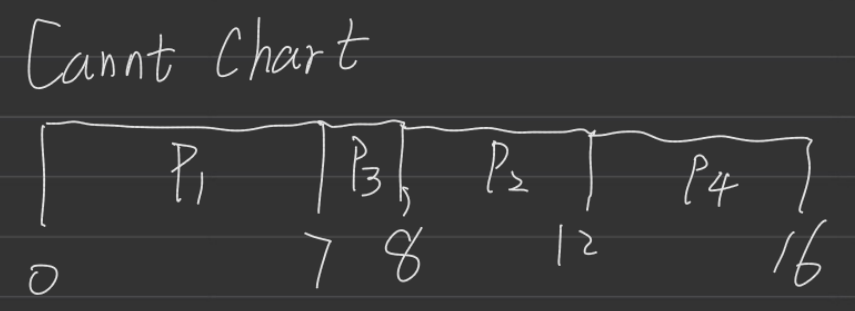 Cannt Chart
P1 P3 P2 P4
0 7 8 12 16